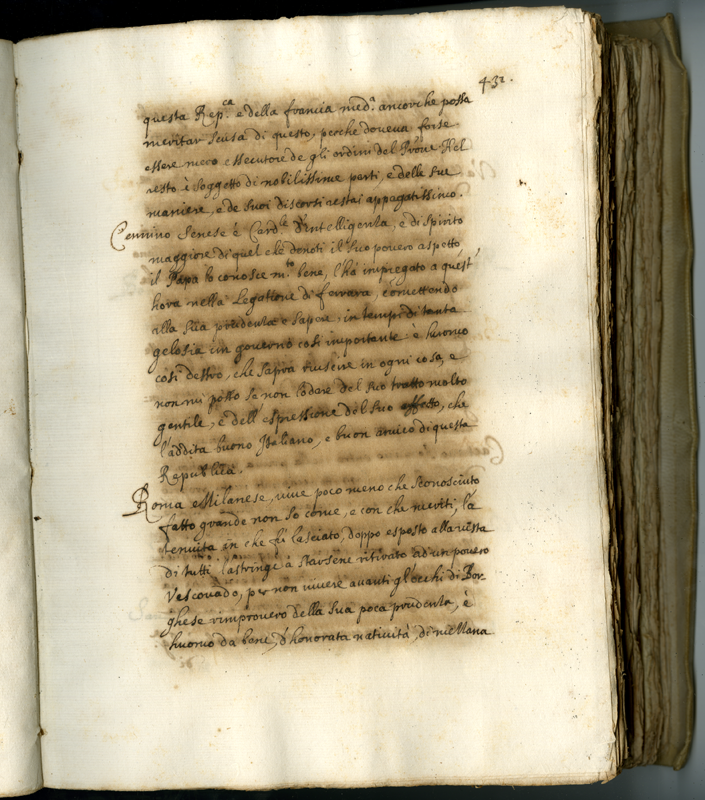 431.
questa Rep.ca e della francia med.a ancorche possa
meritar scusa di questo, perche doveva forse
essere mero essecutore de gli ordini del Prove Nel
resto è soggetto di nobilissime parti, e delle sue
maniere, e de suoi discorsi restai appagatissimo.
Cennino Senese è Card.le d'intelligenza, e di spirito
maggiore di quel che denoti il suo povero aspetto,
il Papa lo conosce m.to bene, l'ha impiegato a quest'
hora nella Legatione di ferrara, comettendo
alla sua prudenza e sapere, in tempi di tanta
gelosia un governo così importante è huomo
così destro, che saprà riuscire in ogni cosa, e
non mi posso se non lodare del suo tratto molto
gentile, e dell'espressione del suo affetto, che
l'addita buono Italiano, e buon amico di questa
Republica.
Roma Milanese, vive poco meno che sconosciuto
fatto grande non so come, e con che meriti, la
tenuita in che fù lasciato, doppo esposto alla vista
di tutti l'astringe à starsene ritirato ad un povero
Vescovado, per non vivere avanti gl'occhi di Bor-
ghese rimprovero della sua poca prudenza, è
huomo da bene, d'honorata natività, di mezzana